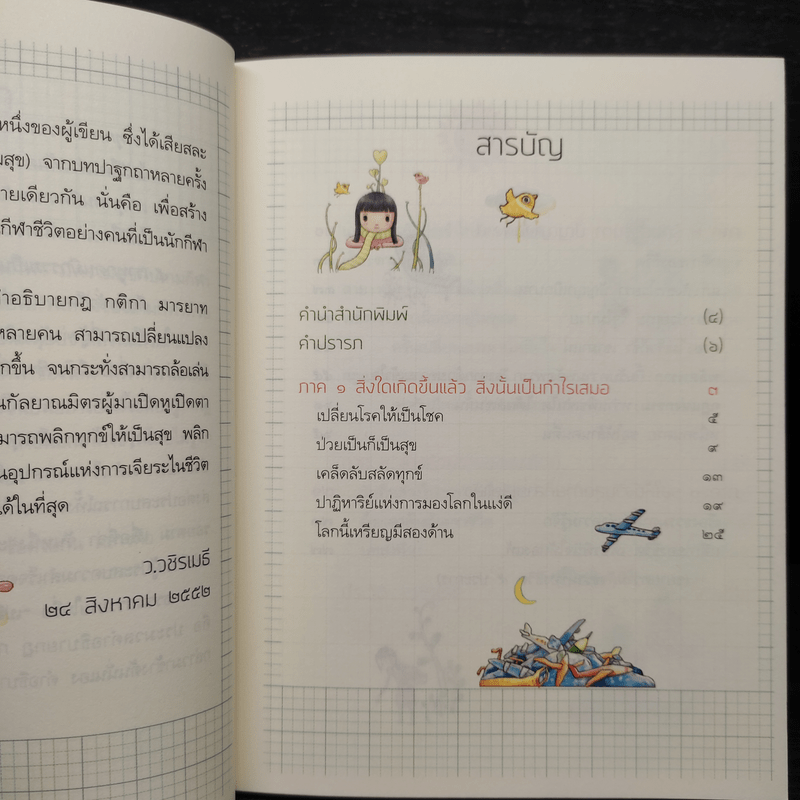 หนึ่งของผู้เขียน ซึ่งได้เสียสละ
สุข) จากบทปาฐกถาหลายครั้ง
ายเดียวกัน นั่นคือ เพื่อสร้าง
กีฬาชีวิตอย่างคนที่เป็นนักกีฬา
ำอธิบายกฎ กติกา มารยาท
หลายคน สามารถเปลี่ยนแปลง
กขึ้น จนกระทั่งสามารถล้อเล่น
นกัลยาณมิตรผู้มาเปิดหูเปิดตา
มารถพลิกทุกข์ให้เป็นสุข พลิก
นอุปกรณ์แห่งการเจียระไนชีวิต
ได้ในที่สุด
ว.วชิรเมธี
๒๔ สิงหาคม ๒๕๕๒
สารบัญ
คำนำสำนักพิมพ์ (๔)
คำปรารภ (๖)
ภาค ๑ สิ่งใดเกิดขึ้นแล้ว สิ่งนั้นเป็นกำไรเสมอ ๓
เปลี่ยนโรคให้เป็นโชค ๕
ป่วยเป็นก็เป็นสุข ๙
เคล็ดลับสลัดทุกข์ ๑๓
ปาฏิหาริย์แห่งการมองโลกในแง่ดี ๑๙
โลกนี้เหรียญมีสองด้าน ๒๕